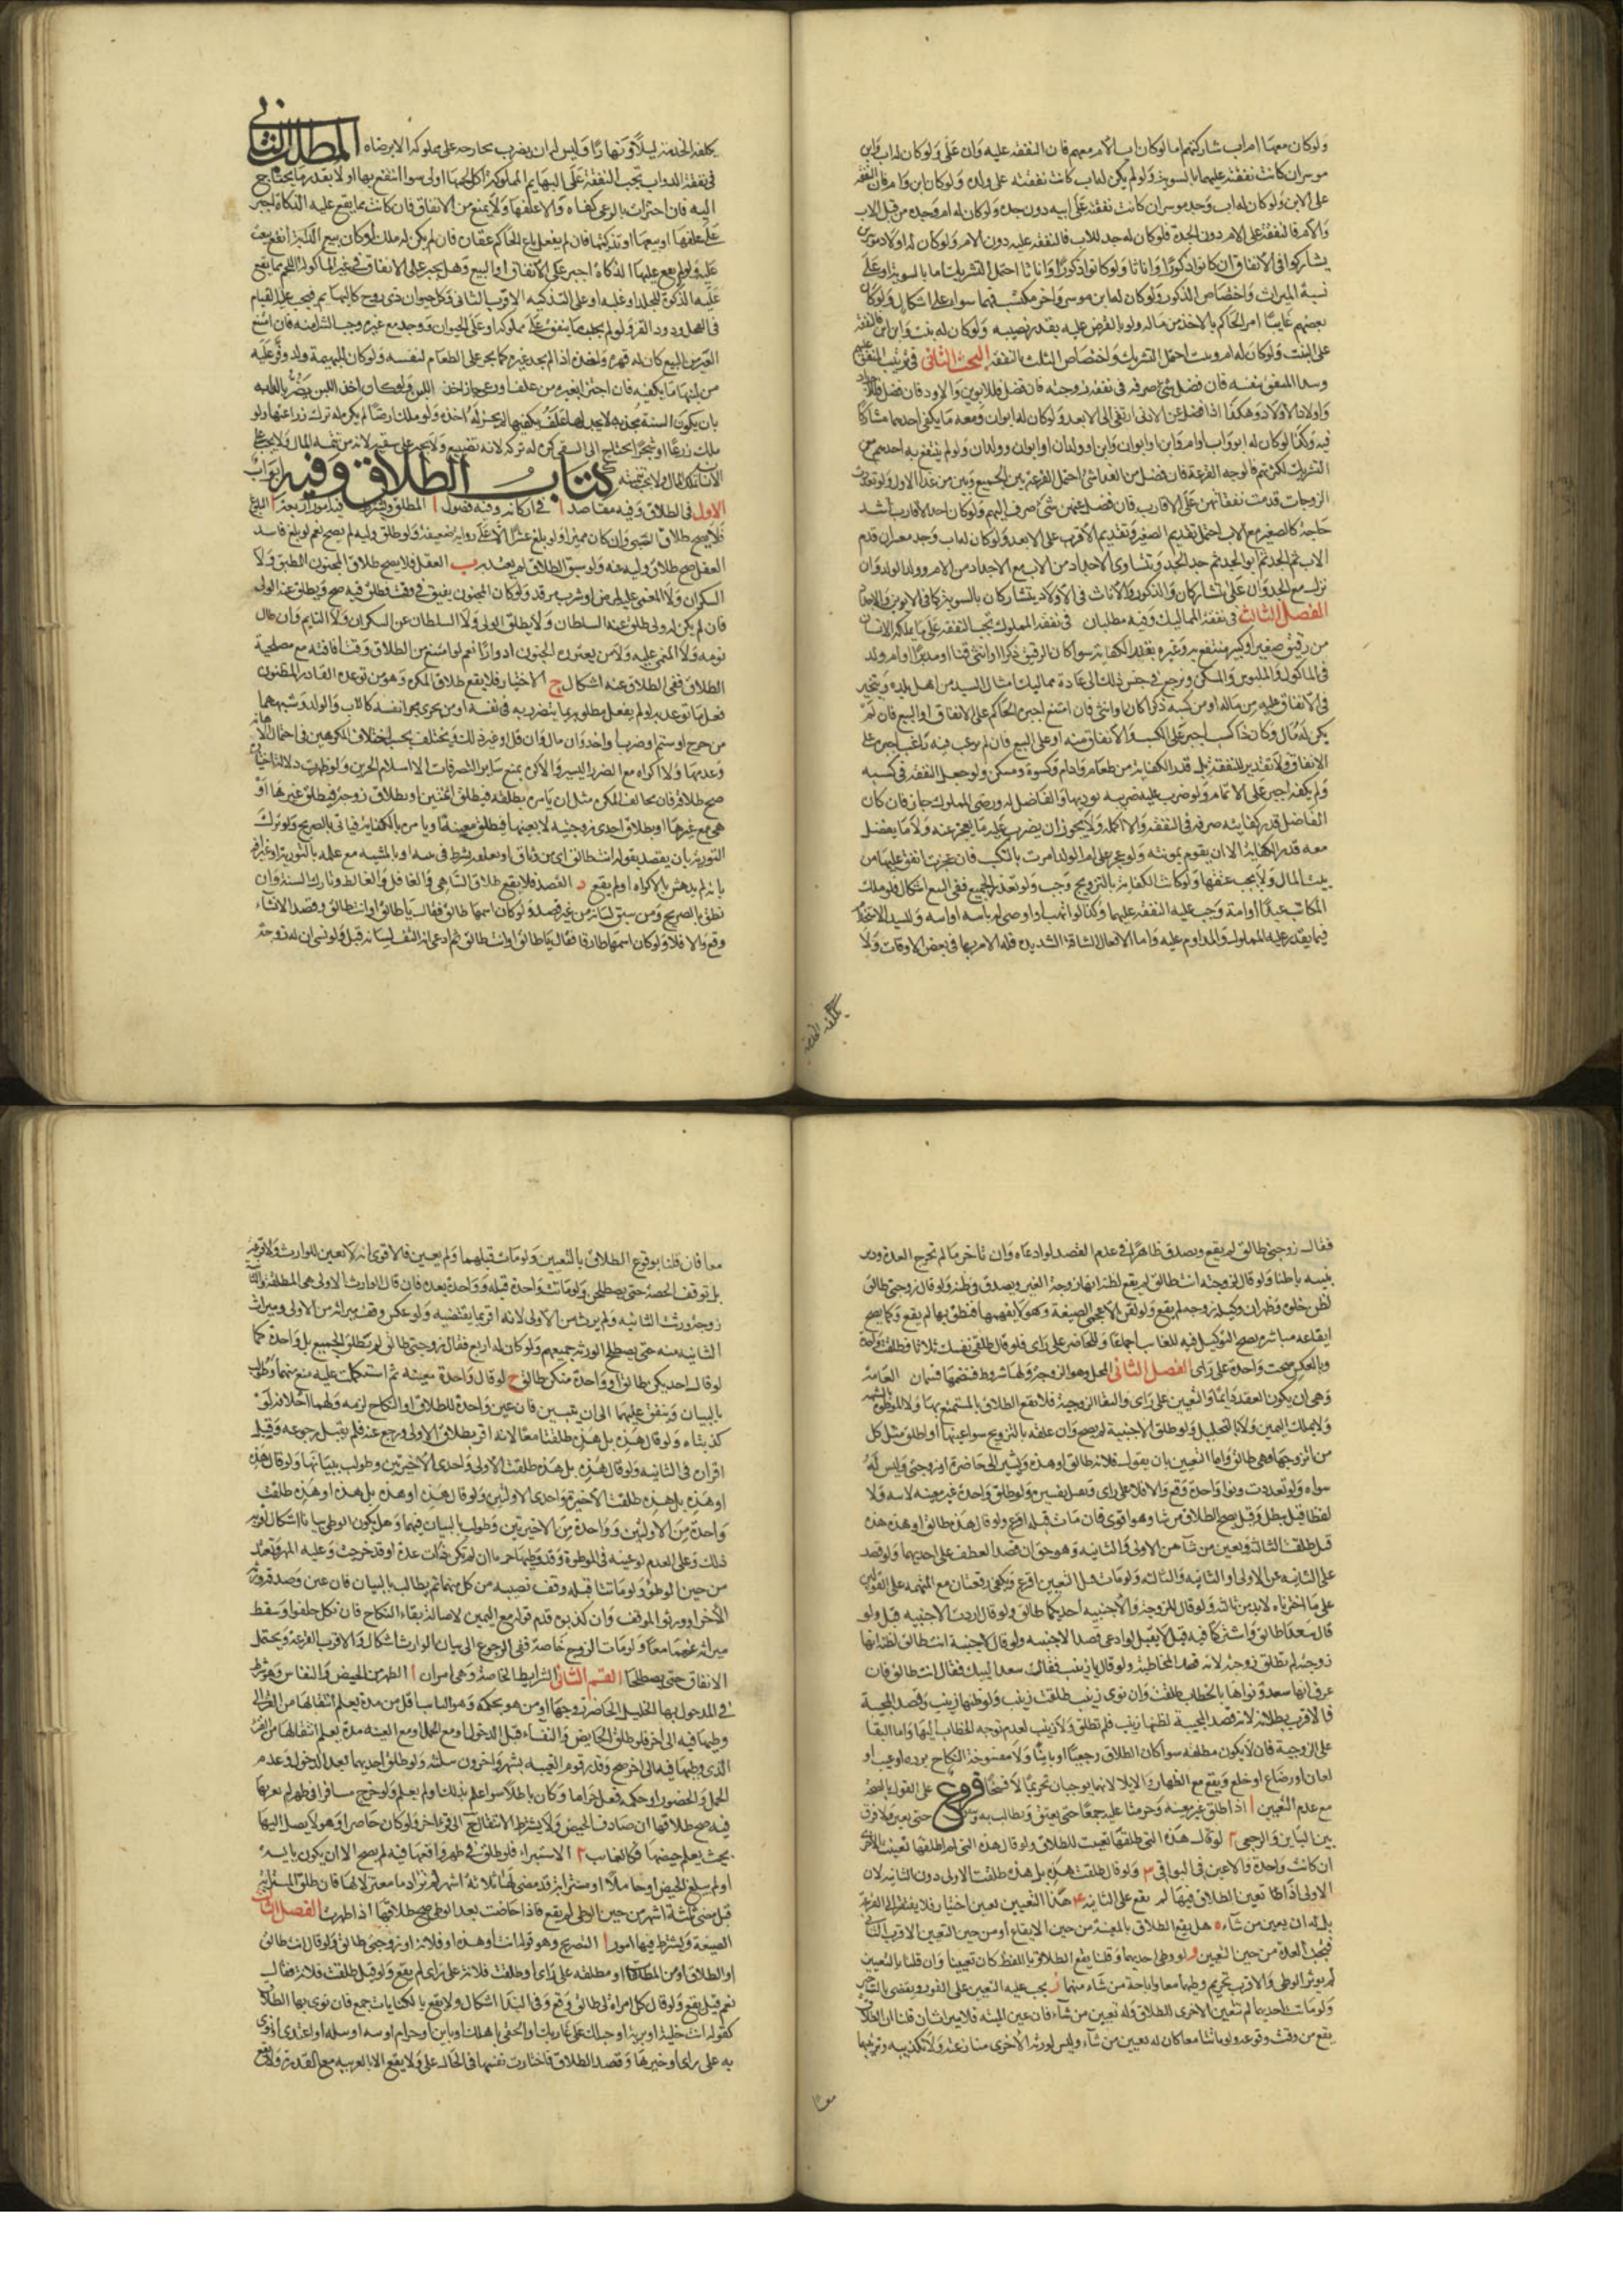 ولو كان معهما ام اب شاركتهم اما لو كان اب الام معهم فان النفقة عليه وان علا ولو كان له اب وابن
موسران كانت نفقته عليهما بالسوية ولو لم يكن له اب كانت نفقته على ولده ولو كان ابن وام فان النفقة
على الابن ولو كان له اب وجد موسران كانت نفقته على ابيه دون جده ولو كان له ام وجده من قبل الاب
والام فالنفقة على الام دون الجدة فلو كان له جد للاب فالنفقة عليه دون الام ولو كان له اولاد موسرين
يشاركوا في الانفاق ان كانوا ذكورا او اناثا ولو كانوا ذكورا واناثا احتمل التشريك اما بالسوية او على
نسبة الميراث واختصاص الذكور ولو كان له ابن موسر واخر مكتسب فهما سواء على اشكال ولو كان
بعضهم غايبا امر الحاكم بالاخذ من ماله ولو بالقرض عليه بقدر نصيبه ولو كان له بنت وابن ابن فالنفقة
على البنت ولو كان له ام وبنت احتمل التشريك واختصاص البنت بالنفقة البحث الثاني في ترتيب المنفق عليهم
ويبدا المنفق بنفسه فان فضل شئ صرفه في نفقة زوجته فان فضل فللابوين والاولاد فان فضل فللاجداد
واولاد الاولاد وهكذا اذا فضل عن الادنى ارتقى الى الابعد ولو كان له ابوان ومعه ما يكفي احدهما تشاركا
فيه وكذا لو كان له ابن واب او ام وابن او ابوان وابن او ولدان او ابوان وولدان ولو لم ينتفع به احدهم مع
التشريك لكثرتهم فالوجه القرعة فان فضل من الغداء شئ احتمل القرعة بين الجميع وبين من عدا الاول ولو تعددت
الزوجات قدمت نفقاتهن على الاقارب فان فضل عنهن شئ صرف اليهم ولو كان احد الاقارب اشد
حاجة كالصغير مع الاب احتمل تقديم الصغير وتقديم الاقرب على الابعد ولو كان له اب وجد معسران قدم
الاب ثم الجد ثم ابو الجد ثم جد الجد ويتساوى الاجداد من الاب مع الاجداد من الام وولد الولد وان
نزل مع الجد وان علا تشاركان والذكور والاناث في الاولاد يتشاركان بالسوية كما في الابوين والاجداد
الفصل الثالث في نفقة المماليك وفيه مطلبان في نفقة المملوك تجب النفقة على ما يملكه الانسان
من رقيق صغير او كبير منتفع به وغيره بقدر الكفاية سوا كان الرقيق ذكرا او انثى قنا او مدبرا او ام ولد
في الماكول والملبوس والمسكن ويرجع في جنس ذلك الى عادة مماليك امثال السيد من اهل بلده ويتخير
في الانفاق عليه من ماله او من كسبه ذكرا كان او انثى فان امتنع اجبره الحاكم على الانفاق او البيع فان لم
يكن له مال وكان ذا كسب اجبر على الكسب والانفاق منه او على البيع فان لم يرغب فيه راغب اجبر على
الانفاق ولا تقدير للنفقة بل قدر الكفاية من طعام وادام وكسوة ومسكن ولو جعل النفقة في كسبه
ولم يكفه اجبر على الاتمام ولو ضرب عليه ضريبة يوديها والفاضل له ورضي المملوك جاز فان كان
الفاضل قدر كفايته صرفه في النفقة والا اكمله ولا يجوز ان يضرب عليه ما يعجز عنه ولا ما يفضل
معه قدر الكفاية الا ان يقوم بمونته ولو عجز على ام الولد امرت بالتكسب فان عجزت انفق عليها من
بيت المال ولا يجب عتقها ولو كانت الكفاية بالتزويج وجب ولو تعذر الجميع ففي البيع اشكال فلو ملك
المكاتب عبدا او امة وجب عليه النفقة عليهما وكذا لو اتهب او اوصي له وللسيد الاستخدام
فيما يقدر عليه المملوك والمداوم عليه واما الافعال الشاقة الشديدة فله الامر بها في بعض الاوقات ولا
يكلفه الخدمة
يكلفه الخدمة ليلا ونهارا وليس له ان يضرب مخارجة على مملوكه الا برضاه المطلب الثاني
في نفقة الدواب تجب النفقة على البهايم المملوكة اكل لحمها اولى سوا انتفع بها او لا بقدر ما يحتاج
اليه فان اجتزات بالرعي كفاه والا علفها ولا يمنع من الانفاق فان كانت مما يقع عليه الذكاة اجبر
على علفها او بيعها او تذكيتها فان لم يفعل باع الحاكم عقاره فان لم يكن له ملك او كان بيع الدابة انفع بيعت
عليه ولو لم يقع عليها الذكاة اجبر على الانفاق او البيع وهل يجبر على الانفاق في غير الماكول اللحم مما يقع
عليه الذكوة للجلد او غلبه او على التذكية الاقرب الثاني وكل حيوان ذي روح كالبهايم فيجب عليه القيام
في النحل ودود القز ولو لم يجد ما ينفق على مملوكه او على الحيوان ووجد مع غيره وجب الشرا منه فان امتنع
الغير من البيع كان له قهره واخذه اذا لم يجد غيره كما يجبر على الطعام لنفسه ولو كان للبهيمة ولد وفر عليه
من لبنها ما يكفيه فان اجتزى بغيره من علف او رعي جاز اخذ اللبن ولو كان اخذ اللبن يضر بالدابة
بان يكون السنة مجدبة لا يجد لها علف يكفيها لم يجز له اخذه ولو ملك ارضا لم يكره له ترك زراعتها ولو
ملك زرعا او شجرا يحتاج الى السقي كره له تركه لانه تضييع ولا يجبر على سقيه لانه من تنمية المال ولا يجب على
الانسان تملك المال ولا يجب تنميته كتاب الطلاق وفيه ابواب
الاول في الطلاق وفيه مقاصد ا في اركانه وفيه فصول ا المطلق ويشترط فيه امور اربعة ا البلوغ
فلا يصح طلاق الصبي وان كان مميزا ولو بلغ عشرا الا على رواية ضعيفة ولو طلق وليه لم يصح نعم لو بلغ فاسد
العقل صح طلاق وليه عنه ولو سبق الطلاق لم يعتد به ب العقل فلا يصح طلاق المجنون المطبق ولا
السكران ولا المغمى عليه لمرض او شرب مرقد ولو كان المجنون يفيق في وقت فطلق فيه صح ويطلق عنه الولي
فان لم يكن له ولي طلق عنه السلطان ولا يطلق الولي ولا السلطان عن السكران ولا النايم وان طال
نومه ولا المغمى عليه ولا من يعتوره الجنون ادوارا نعم لو امتنع من الطلاق وقت افاقته مع مصلحية
الطلاق ففي الطلاق عنه اشكال ج الاختيار فلا يقع طلاق المكره وهو من توعده القادر المظنون
فعل ما توعد به لو لم يفعل مطلوبه بما يتضرر به في نفسه او من يجري مجرى نفسه كالاب والولد وشبههما
من جرح او شتم او ضرب واخذ مال وان قل وغير ذلك ويختلف بحسب اختلاف المكرهين في احتمال الاهانة
وعدمها ولا اكراه مع الضرر اليسير والاكراه يمنع ساير التصرفات الا اسلام الحربي ولو ظهرت دلالة اختياره
صح طلاقه فان خالف المكره مثل ان يامره بطلقة فيطلق اثنتين او بطلاق زوجة فيطلق غيرها او
هي مع غيرها او بطلاق احدى زوجتيه لا بعينها فيطلق معينة او يامره بالكناية فياتي بالصريح ولو ترك
التورية بان يقصد بقوله انت طالق اي من وثاق او يعلقه بشرط في نفسه او بالمشية مع علمه بالتورية واعترافه
بانه لم يدهش بالاكراه لم يقع د القصد فلا يقع طلاق الساهي والغافل والغالط وتارك النية وان
نطق بالصريح ومن سبق لسانه من غير قصد ولو كان اسمها طالق فقال يا طالق او انت طالق وقصد الانشاء
وقع والا فلا ولو كان اسمها طارقا فقال يا طالق او انت طالق ثم ادعى انه التف لسانه قبل ولو نسي ان له زوجة
فقال زوجتي طالق لم يقع ويصدق ظاهرا في عدم القصد لو ادعاه وان تاخر ما لم تخرج العدة ودين
بنيته باطنا ولو قال لزوجته انت طالق لم يقع لظنه انها زوجة الغير ويصدق في ظنه ولو قال زوجتي طالق
لظن خلوه وظهر ان وكيله زوجه لم يقع ولو لقن الاعجمي الصيغة وهو لا يفهمها فنطق بها لم يقع وكما يصح
ايقاعه مباشرة يصح التوكيل فيه للغايب اجماعا وللحاضر على راي فلو قال طلقي نفسك ثلاثا فطلقت واحدة
وبالعكس صحت واحدة على راي الفصل الثاني المحل وهو الزوجة ولها شروط فنضمها قسمان العامة
وهي ان يكون العقد دايما والتعيين على راي وانتفا الزوجية فلا يقع الطلاق بالمستمتع بها ولا الموطوة بالشبهة
ولا بملك اليمين ولا بالتحليل ولو طلق الاجنبية لم يصح وان علقه بالتزويج سوا عينها او اطلق مثل كل
من اتزوجها فهي طالق واما التعيين بان يقول فلانة طالق او هذه ويشير الى حاضرة او زوجتي وليس له
سواها ولو تعددت ونوى واحدة وقع والا فلا على راي وتقبل تفسيره ولو طلق واحدة غير معينة لا نية ولا
لفظا قيل يبطل وقيل يصح الطلاق من شا وهو اقوى فان مات قبله اقرع ولو قال هذه طالق او هذه هذه
قيل طلقت الثالثة ويعين من شا من الاولى والثانية وهو حق ان قصد العطف على احديهما ولو قصد
على الثانية عين الاولى او الثانية والثالثة ولو مات قبل التعيين اقرع ويكفي رقعتان مع المتهمة على القولين
على ما اخترناه لا بد من ثالثة ولو قال للزوجة والاجنبية احديكما طالق ولو قال اردت الاجنبية قبل ولو
قال سعدا طالق واشتركا فيه قيل لا يقبل لو ادعى قصد الاجنبية ولو قال لاجنبية انت طالق لظنه انها
زوجته لم تطلق زوجته لانه قصد المخاطبة ولو قال يا زينب فقالت سعدا لبيك فقال انت طالق فان
عرف انها سعد ونواها بالخطاب طلقت وان نوى زينب طلقت زينب ولو ظنها زينب وقصد المجيبة
فالاقرب بطلانه لانه قصد المجيبة لظنها زينب فلم تطلق ولا زينب لعدم توجه الخطاب اليها واما البقا
على الزوجية فان لا يكون مطلقه سوا كان الطلاق رجعيا او باينا ولا مفسوخة النكاح برده او عيب او
لعان او رضاع او خلع ويقع مع الظهار والايلا لانهما يوجبان تحريما لا فسخا فروع على القول بالصحة
مع عدم التعيين ا اذا طلق غير معينة وحرمتا عليه جميعا حتى يعين ويطالب به وينفق حتى يعين ولا فرق
بين الباين والرجعي ٢ لو قال هذه التي طلقتها تعينت للطلاق ولو قال هذه التي لم اطلقها تعينت الاخرى
ان كانت واحدة والا عين في البواقي ٣ ولو قال طلقت هذه بل هذه طلقت الاولى دون الثانية لان
الاولى اذا تعين الطلاق فيها لم يقع على الثانية ٤ هذا التعيين تعيين اختيار فلا يفتقر الى القرعة
بل له ان يعين من شاء ٥ هل يقع الطلاق بالمعينة من حين الايقاع او من حين التعيين الاقرب الثاني
فيجب العدة من حين التعيين و لو وطى احديهما وقلنا يقع الطلاق باللفظ كان تعيينا وان قلنا بالتعيين
لم يوثر الوطي والاقرب تحريم وطيهما معا واباحة من شاء منهما ز يجب عليه التعيين على الفور ويعصي بالتاخير
ولو ماتت احديهما لم تتعين الاخرى للطلاق وله تعيين من شاء فان عين الميتة فلا ميراث ان قلنا ان الطلاق
يقع من وقت وقوعه ولو ماتتا معا كان له تعيين من شاء وليس لورثة الاخرى منازعته ولا تكذيبه وترثهما
معا
معا فان قلنا بوقوع الطلاق بالتعيين ولو مات قبلهما ولم يعين فالاقوى انه لا تعيين للوارث ولا قرعة
بل توقف الحصة حتى يصطلحن ولو ماتت واحدة قبله وواحدة بعده فان قال الوارث الاولى هي المطلقة والثانية
زوجة ورثت الثانية ولم يرث من الاولى لانه اقر بما يقتضيه ولو عكس وقف ميراثه من الاولى وميراث
الثانية منه حتى يصطلح الورثة جميعهم ولو كان له اربع فقال زوجتي طالق لم تطلق الجميع بل واحدة كما
لو قال احديكن طالق او واحدة منكن طالق ح لو قال واحدة معينة ثم استبهمت عليه منع منهما وطولب
بالبيان وينفق عليهما الى ان يتبين فان عين واحدة للطلاق او النكاح لزمه ولهما احلافه لو
كذبتاه ولو قال هذه بل هذه طلقتا معا لانه اقر بطلاق الاولى ورجع عنه فلم يقبل رجوعه وقبل
اقراره في الثانية ولو قال هذه بل هذه طلقت الاولى واحدى الاخيرتين وطولب ببيانها ولو قال هذه
او هذه بل هذه طلقت الاخيرة واحدى الاوليين ولو قال هذه او هذه بل هذه او هذه طلقت
واحدة من الاوليين وواحدة من الاخيرتين وطولب بالبيان فيهما وهل يكون الوطي بيانا اشكال اقربه
ذلك وعلى العدم لو عينه في الموطوة وقد وطيها حرما ان لم تكن ذات عدة او قد خرجت وعليه المهر وتعتد
من حين الوطي ولو ماتتا قبله وقف نصيبه من كل منهما ثم يطالب بالبيان فان عين وصدقه ورثة
الاخرى ورثوا الموقف وان كذبوه قدم قوله مع اليمين لاصالة بقاء النكاح فان نكل حلفوا وسقط
ميراثه عنهما معا ولو مات الزوج خاصة ففي الرجوع الى بيان الوارث اشكال والاقرب القرعة ويحتمل
الايقاف حتى يصطلحا القسم الثاني الشرايط الخاصة وهي امران ا الطهر من الحيض والنفاس وهو شرط
في المدخول بها الحايل الحاضر زوجها او من هو بحكمه وهو الغايب اقل من مدة يعلم انتقالها من القرء الذي
وطيها فيه الى اخر فلو طلق الحايض والنفساء قبل الدخول او مع الحمل او مع الغيبة مدة يعلم انتقالها من القرء
الذي وطيها فيه الى اخر صح وقدر قوم الغيبة بشهر واخرون بثلثة ولو طلق احديهما بعد الدخول وعدم
الحمل والحضور او حكمه فعل حراما وكان باطلا سوا علم بذلك او لم يعلم ولو خرج مسافرا في طهر لم يقربها
فيه صح طلاقها ان صادف الحيض ولا يشترط الانتقال الى قرء اخر ولو كان حاضرا وهو لا يصل اليها
بحيث يعلم حيضها فكالغايب ٢ الاستبراء فلو طلق في طهر واقعها فيه لم يصح الا ان يكون يايسة
او لم يبلغ الحيض او حاملا او مسترابة قد مضى لها ثلاثة اشهر لم تر دما معتزلا لها فان طلق المسترابة
قبل مضي ثلثة اشهر من حين الوطي لم يقع فاذا حاضت بعد الوطي صح طلاقها اذا طهرت الفصل الثالث
الصيغة ويشترط فيها امور ا التصريح وهو قوله انت او هذه او فلانة او زوجتي طالق ولو قال انت طالق
او الطلاق او من المطلقات او مطلقه على راي او طلقت فلانة على راي لم يقع ولو قيل طلقت فلانة فقال
نعم قيل يقع ولو قال كل امراة لي طالق وقع وفي الندا اشكال ولا يقع بالكنايات جمع فان نوى بها الطلاق
كقوله انت خلية او برية او حبلك على غاربك او الحقي باهلك او باين او حرام او بتة او بتلة او اعتدي ان نوى
به على راي او خيرها وقصد الطلاق فاختارت نفسها في الحال على راي ولا يقع الا بالعربية مع القدرة ولا يقع